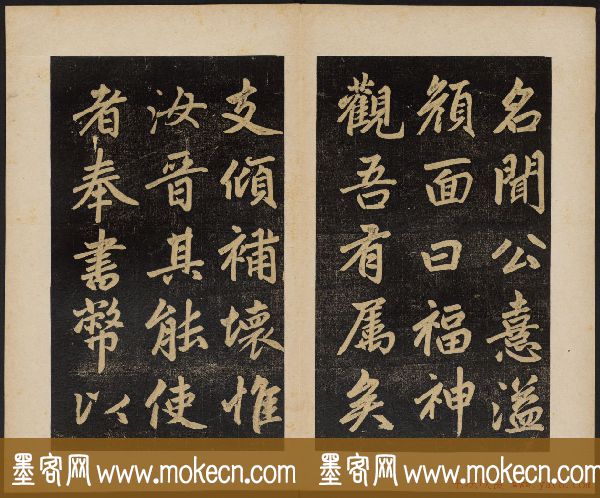 名聞公憙溢
顏面曰福神
觀吾有属矣
支傾補壞惟
汝晋其能使
者奉書幣以
墨客网 www.mokecn.com 墨客网 www.mokecn.com